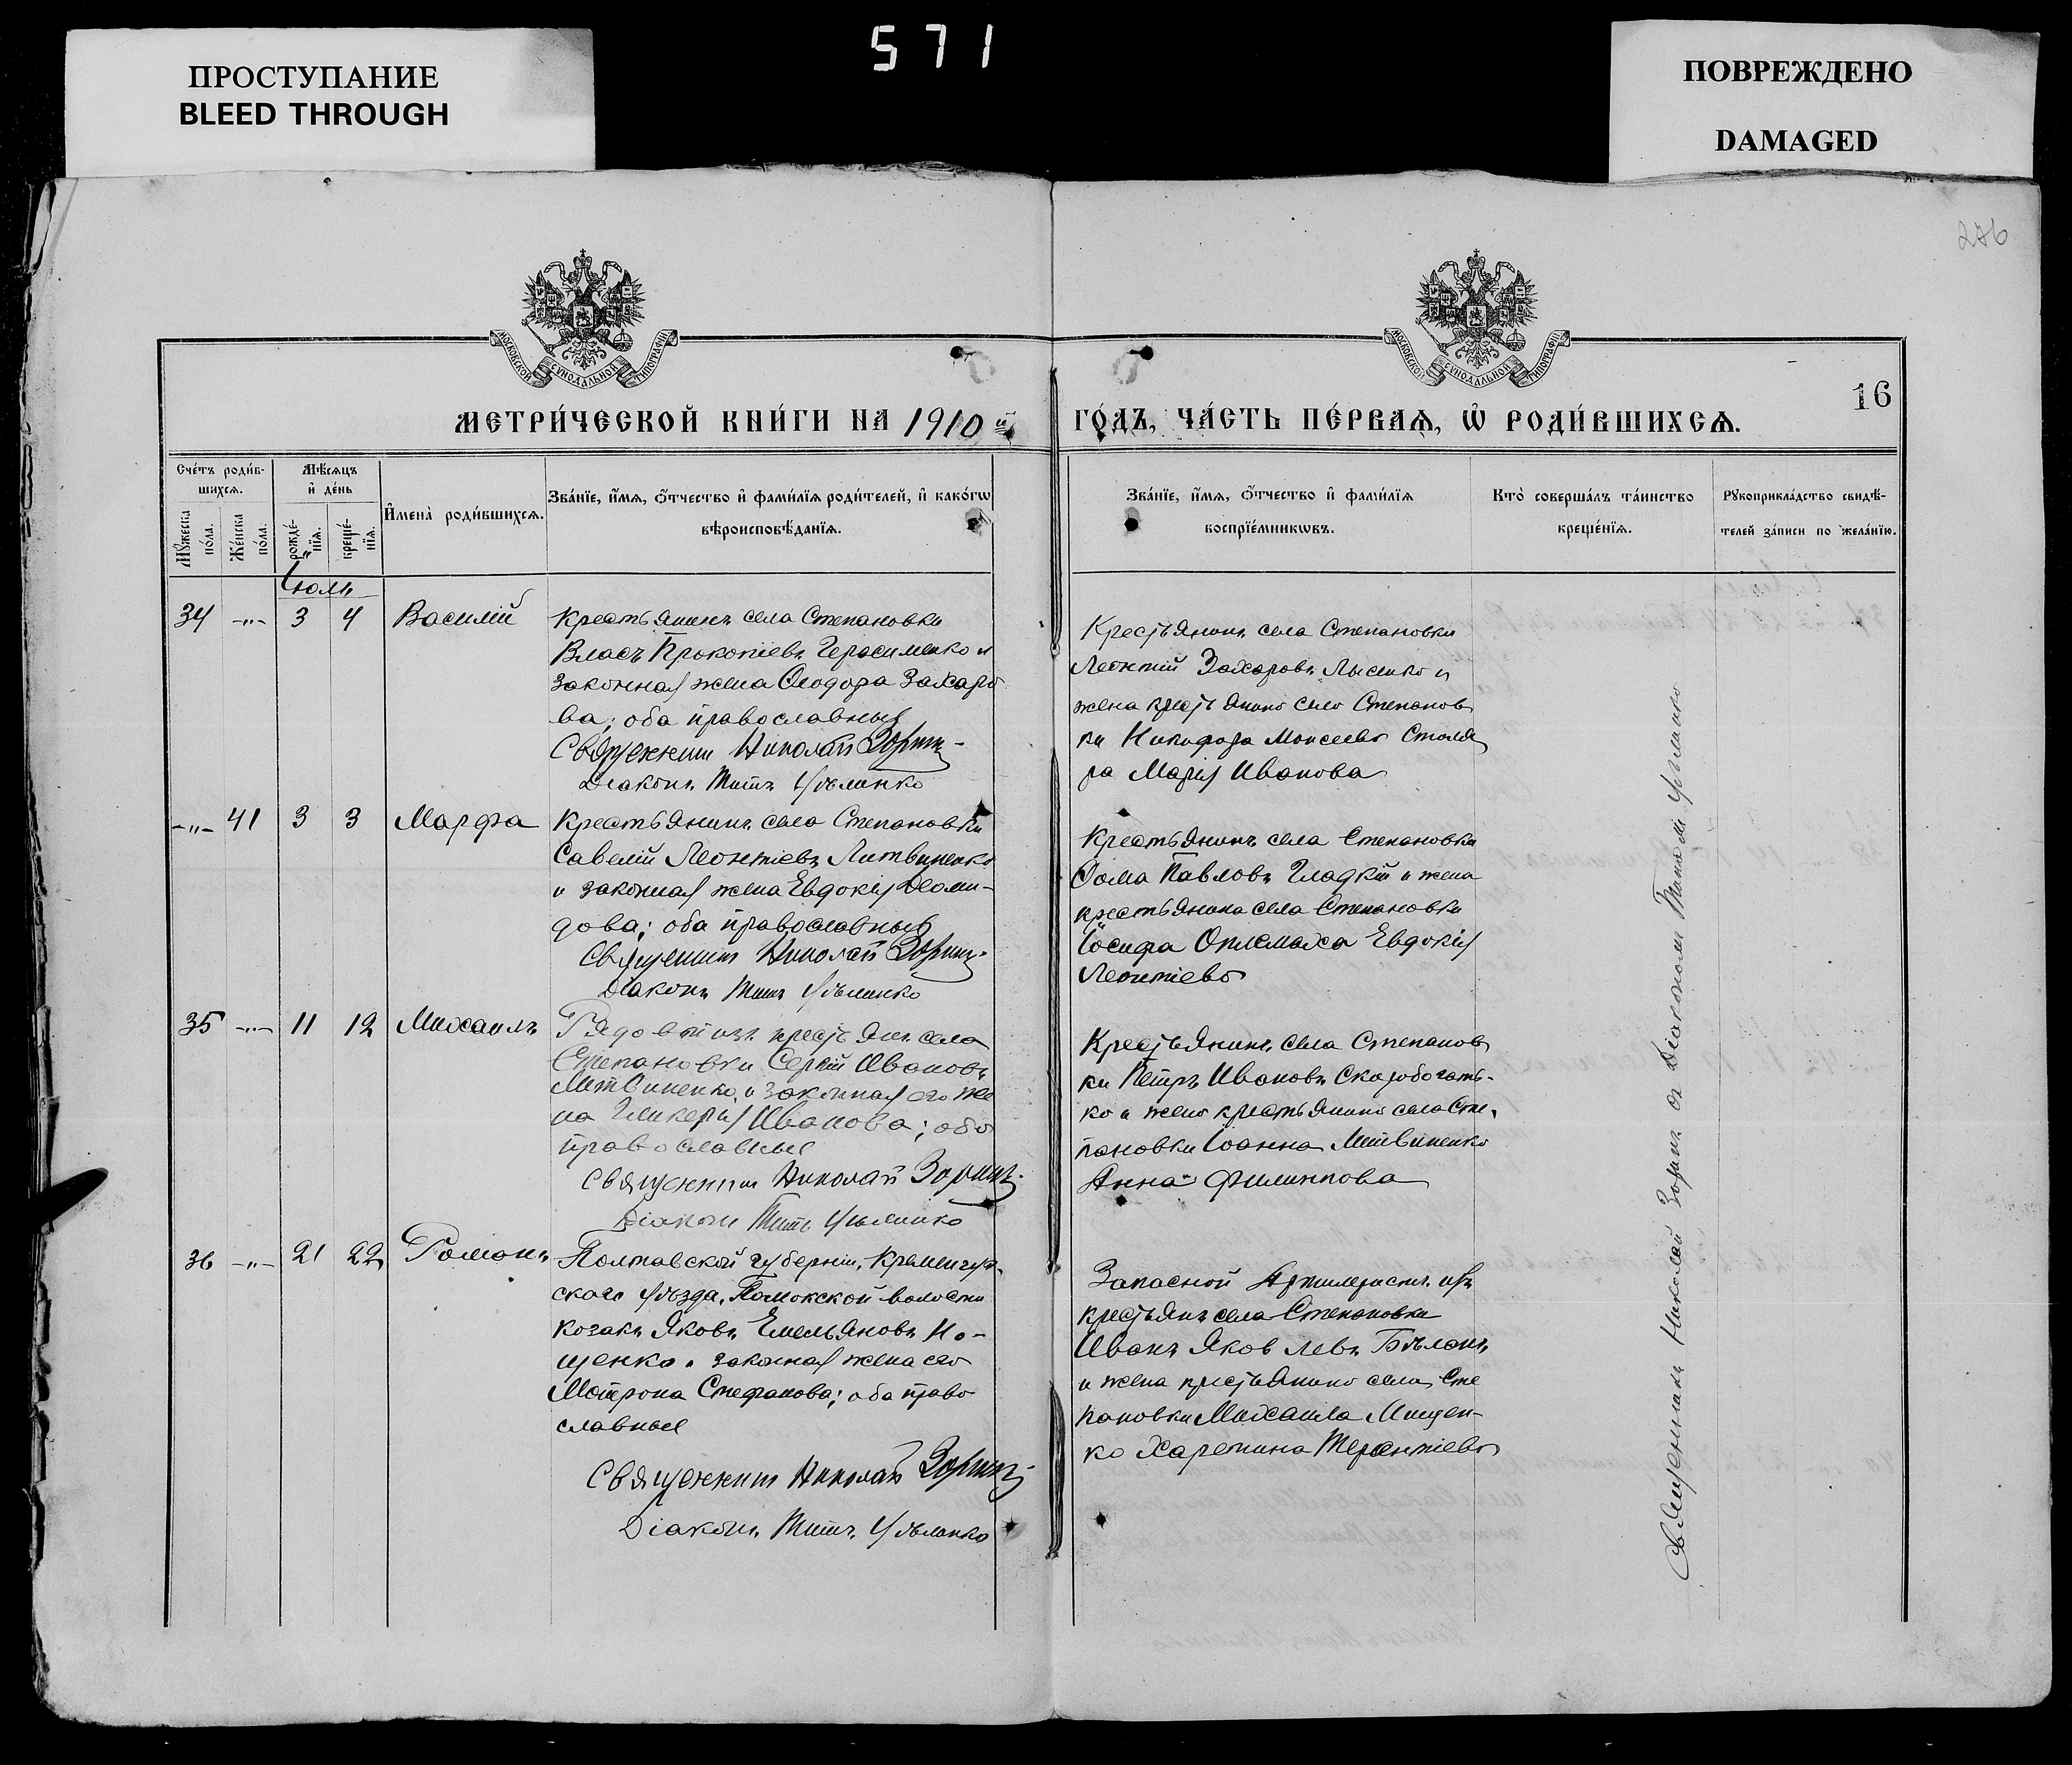 ПРОСТУПАНИЕ
BLEED THROUGH
571
ПОВРЕЖДЕНО
DAMAGED
276
МОСКОВСКОЙ СУНОДАЛЬНОЙ ТИПОГРАФІИ
МОСКОВСКОЙ СУНОДАЛЬНОЙ ТИПОГРАФІИ
16
МЕТРИ́ЧЕСКОЙ КНИ́ГИ НА 1910й ГО́ДЪ, ЧА́СТЬ ПЕ́РВАѦ, Ѡ҆ РОДИ́ВШИХСѦ.
Сче́тъ роди́в-
шихсѧ.
Мꙋ́жеска
по́ла.
Же́нска
по́ла.
Мѣ́сѧцъ
и҆ де́нь
рожде́-
нїѧ.
креще́-
нїѧ.
И҆мена̀ роди́вшихсѧ.
Зва́нїе, и҆́мѧ, ѻ҆́тчество и҆ фами́лїѧ роди́телей, и҆ како́гѡ
вѣроисповѣ́данїѧ.
Зва́нїе, и҆́мѧ, ѻ҆́тчество и҆ фами́лїѧ
воспрїе́мникѡвъ.
Кто̀ соверша́лъ та́инство
креще́нїѧ.
Рꙋкоприкла́дство свидѣ́-
телей за́писи по жела́нїю.
Іюль
34 -"- 3 4 Василій
Крестьянинъ села Степановки
Власъ Прокопіевъ Герасименко и
законная жена Ѳеодора Захаро
ва; оба православные
Священникъ Николай Зоринъ
Діаконъ Титъ
Крестьянинъ села Степановки
Леонтій Захаровъ Лысенко и
жена крестьянина села Степанов
ки Никифора Моисеева Столя
ра Марія Иванова
-"- 41 3 3 Марфа
Крестьянинъ села Степановки
Савелій Леонтіевъ Литвиненко
и законная жена Евдокія Діоми-
дова; оба православные
Священникъ Николай Зоринъ
Діаконъ Титъ
Крестьянинъ села Степановки
Ѳома Павловъ Гладкій и жена
крестьянина села Степановки
Іосифа Евдокія
Леонтіева
35 -"- 11 12 Михаилъ
Рядовой изъ крестьянъ села
Степановки Сергій Ивановъ
Литвиненко и законная его же
на Гликерія Иванова; оба
православные
Священникъ Николай Зоринъ
Діаконъ Титъ
Крестьянинъ села Степанов
ки Петръ Ивановъ Скоробогать-
ко и жена крестьянина села Сте-
пановки Іоанна Литвиненко
Анна Филиппова
36 -"- 21 22 Романъ
Полтавской губерніи, Кременчуг-
скаго уѣзда, волости
козакъ Яковъ Емельяновъ Но-
щенко и законная жена его
Матрона Стефанова; оба право
славные
Священникъ Николай Зоринъ
Діаконъ Титъ
Запасной Артилеристъ изъ
крестьянъ села Степановки
Иванъ Яковлевъ Бѣланъ
и жена крестьянина села Сте
пановки Михаила Мищен-
ко Харитина Терентіева
Священникъ Николай Зоринъ съ Діакономъ Титомъ